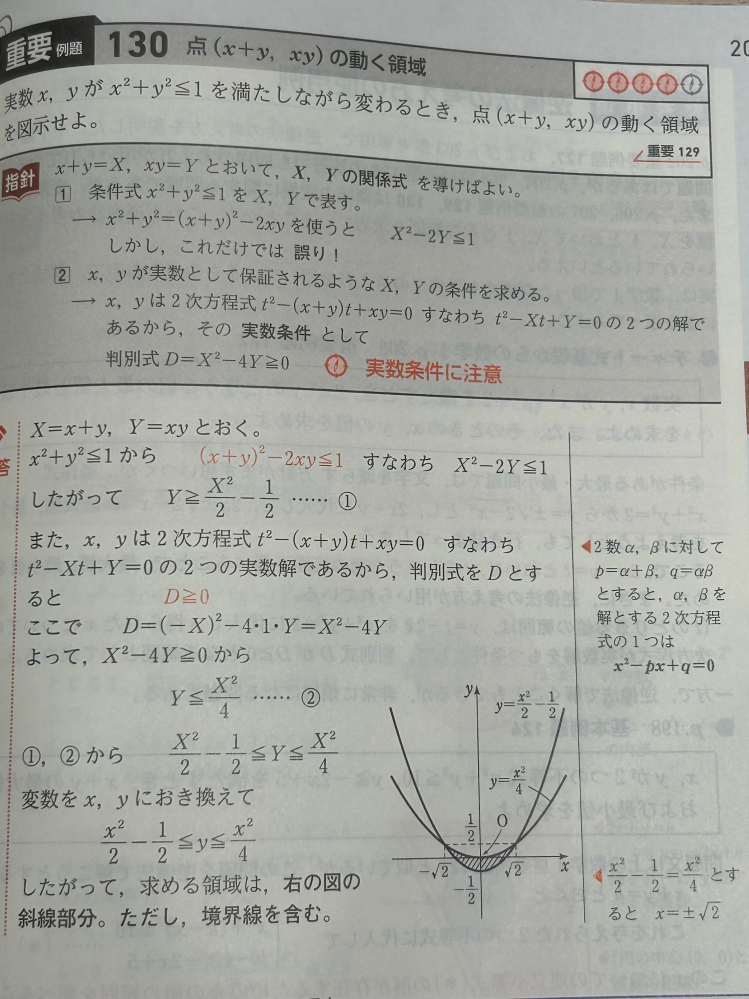 重要 例題 130 点(x+y, xy)の動く領域
20
実数x, yがx²+y²≦1を満たしながら変わるとき，点(x+y, xy)の動く領域
を図示せよ。
重要129
指針
x+y=X, xy=Yとおいて，X, Yの関係式 を導けばよい。
1 条件式x²+y²≦1をX, Yで表す。
→ x²+y²=(x+y)²-2xyを使うと X²-2Y≦1
しかし，これだけでは 誤り！
2 x, yが実数として保証されるようなX, Yの条件を求める。
→ x, yは2次方程式t²-(x+y)t+xy=0 すなわち t²-Xt+Y=0の2つの解で
あるから，その 実数条件 として
判別式D=X²-4Y≧0 実数条件に注意
答
X=x+y, Y=xyとおく。
x²+y²≦1から (x+y)²-2xy≦1 すなわち X²-2Y≦1
したがって Y≧X²/2-1/2 …… ①
また，x, yは2次方程式t²-(x+y)t+xy=0 すなわち
t²-Xt+Y=0の2つの実数解であるから，判別式をDとす
ると D≧0
ここで D=(-X)²-4･1･Y=X²-4Y
よって，X²-4Y≧0から
Y≦X²/4 …… ②
①，②から X²/2-1/2≦Y≦X²/4
変数をx, yにおき換えて
x²/2-1/2≦y≦x²/4
したがって，求める領域は，右の図の
斜線部分。ただし，境界線を含む。
2数α, βに対して
p=α+β, q=αβ
とすると，α, βを
解とする2次方程
式の1つは
x²-px+q=0
y
y=x²/2-1/2
y=x²/4
1/2
O
-√2
√2
x
-1/2
x²/2-1/2=x²/4とす
ると x=±√2